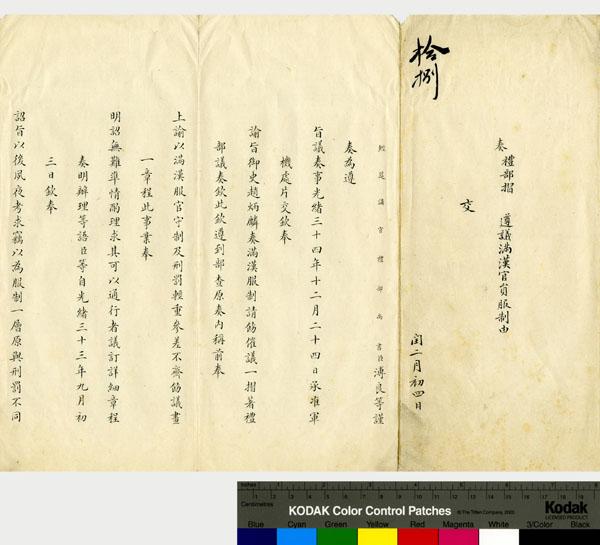 拾捌
奏 禮部摺 遵議滿漢官員服制由
交
閏二月初四日
經筵講官禮部尚書臣溥良等謹
奏為遵
旨議奏事光緒三十四年十二月二十四日承准軍
機處片交欽奉
諭旨御史趙炳麟奏滿漢服制請飭催議一摺著禮
部議奏欽此欽遵到部查原奏內稱前奉
上諭以滿漢服官守制及刑罰輕重參差不齊飭議畫
一章程此事業奉
明詔無難準情酌理求其可以通行者議訂詳細章程
奏明辦理等語臣等自光緒三十三年九月初
三日欽奉
詔旨以後夙夜考求竊以為服制一層原與刑罰不同
Inches
Centimetres
KODAK Color Control Patches
© The Tiffen Company, 2000
Kodak
LICENSED PRODUCT
Blue Cyan Green Yellow Red Magenta White 3/Color Black